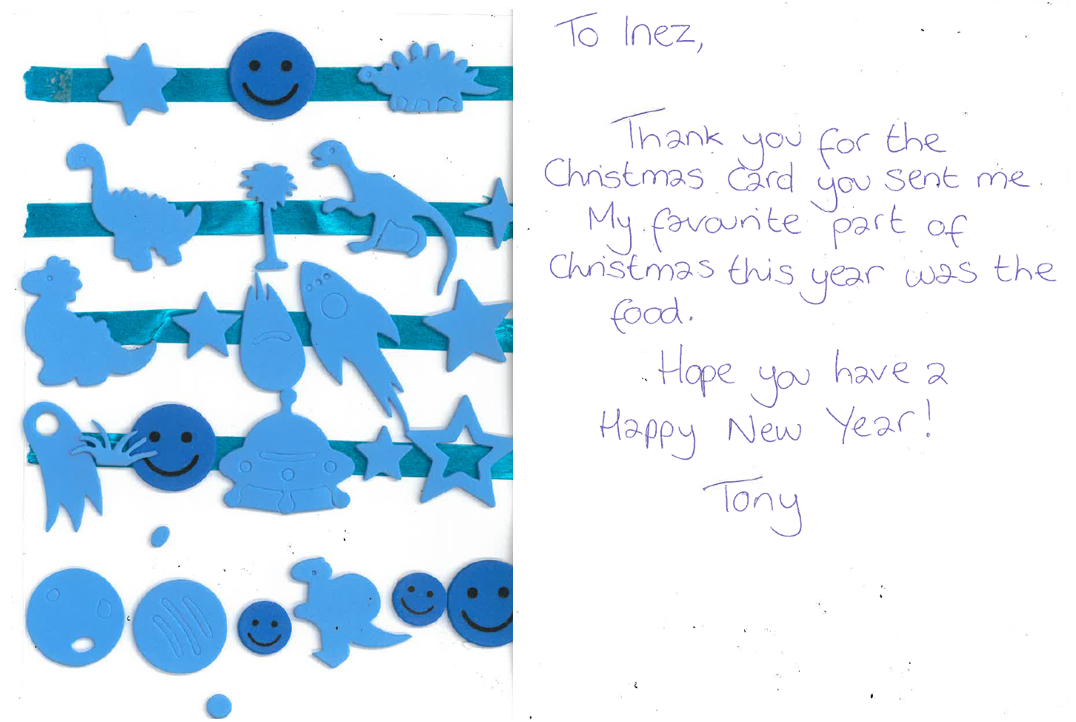 To Inez,
Thank you for the
Christmas Card you sent me.
My favourite part of
Christmas this year was the
food.
Hope you have a
Happy New Year!
Tony